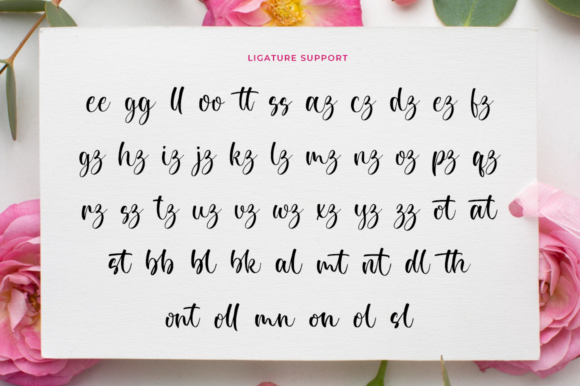 LIGATURE SUPPORT
ee gg ll oo tt ss az cz dz ez fz
gz hz iz jz kz lz mz nz oz pz qz
rz sz tz uz vz wz xz yz zz ot at
st bb bl bk al mt nt dl th
ont oll mn on ol sl